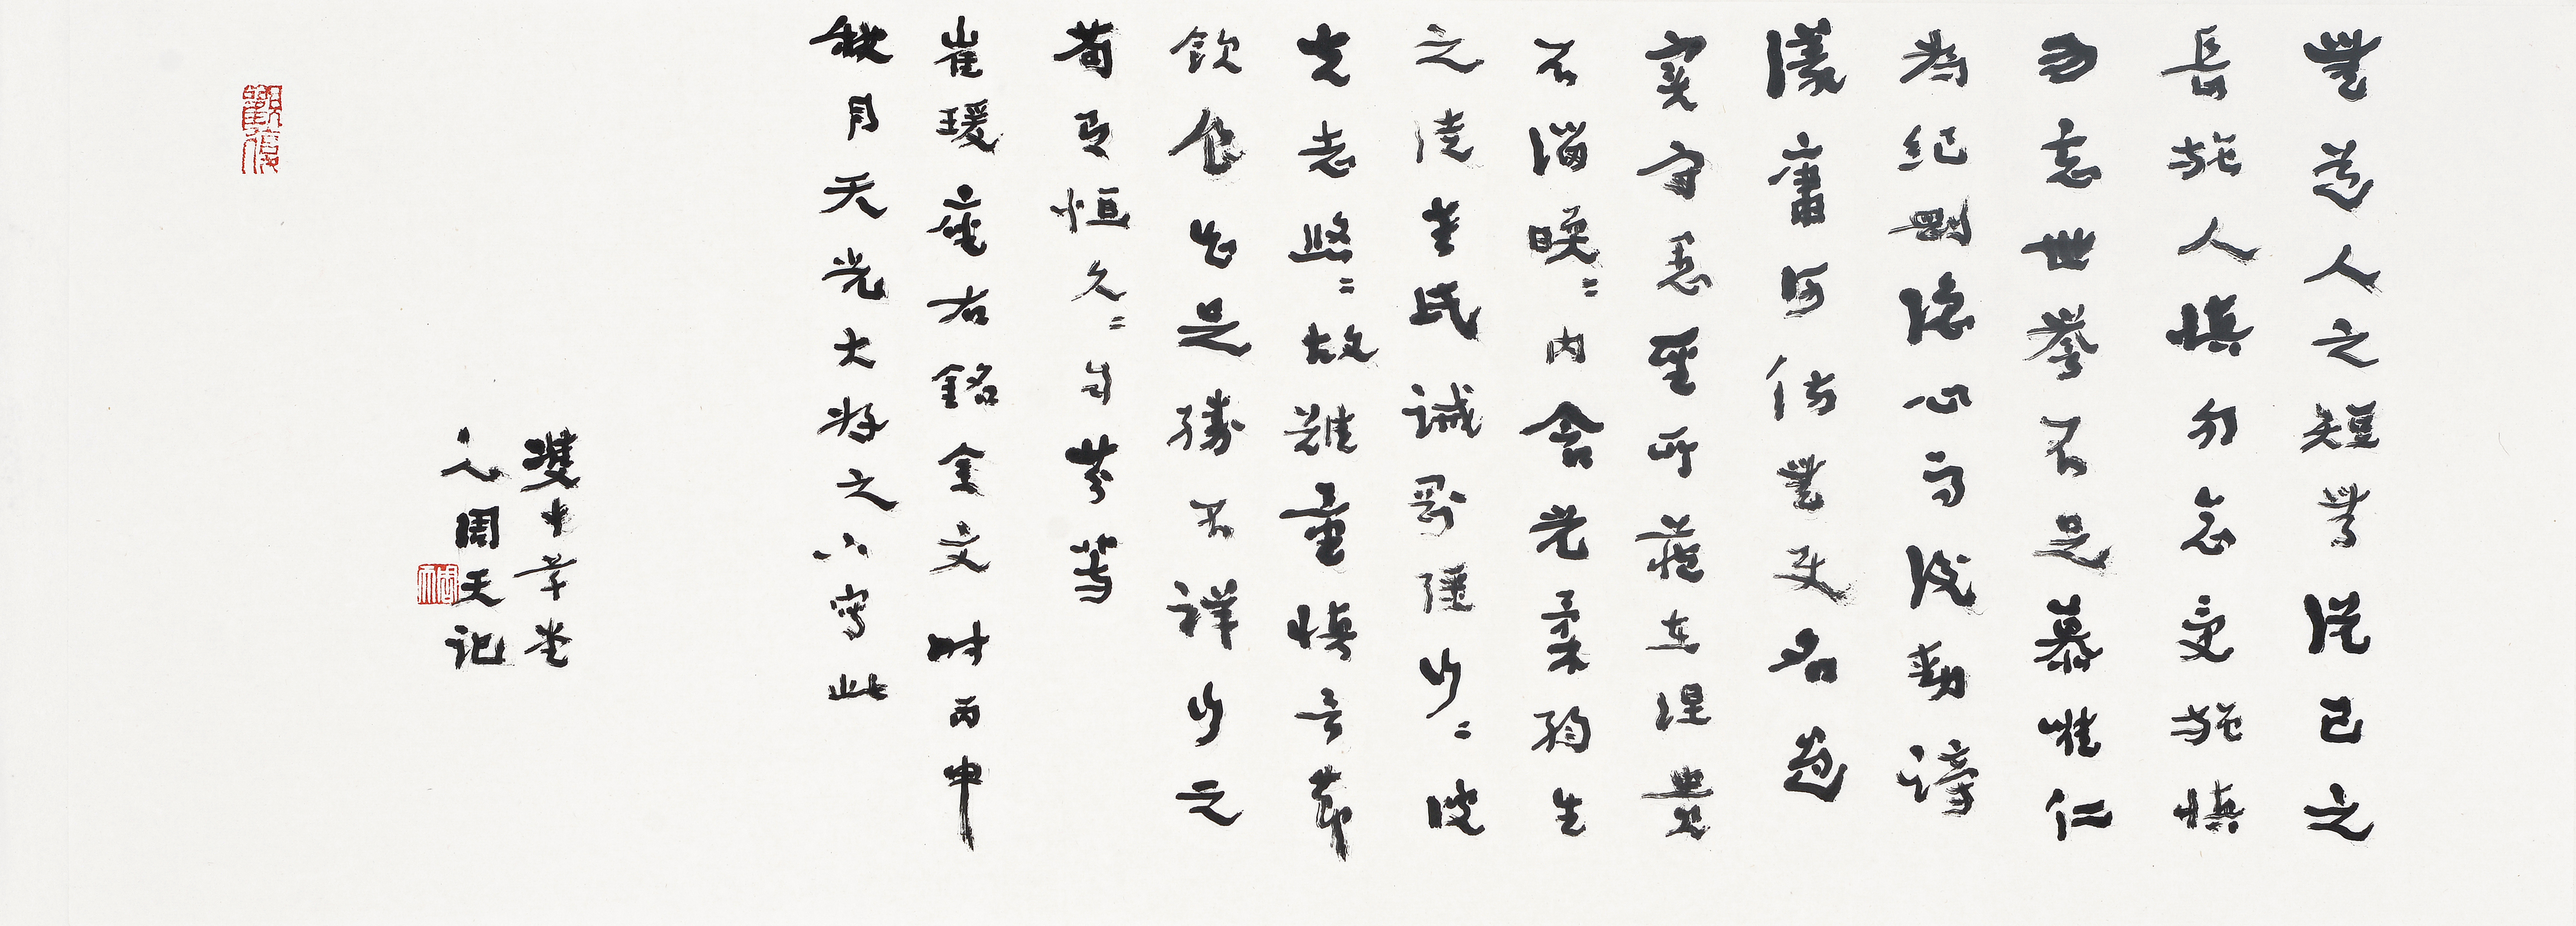 無道人之短無說己之
長施人慎勿念受施慎
勿忘世譽不足慕惟仁
為紀剛隱心而後動謗
議庸何傷無使名過
實守愚聖所臧在涅貴
不淄曖〻內含光柔弱生
之徒老氏誡剛強行〻
夫志悠〻故難量慎言節
飲食知足勝不祥行之
苟有恒久〻自芬芳
崔瑗座右銘全文時丙申
秋月天光大好之寫此
雙中草堂
人周天記
周天
觀復